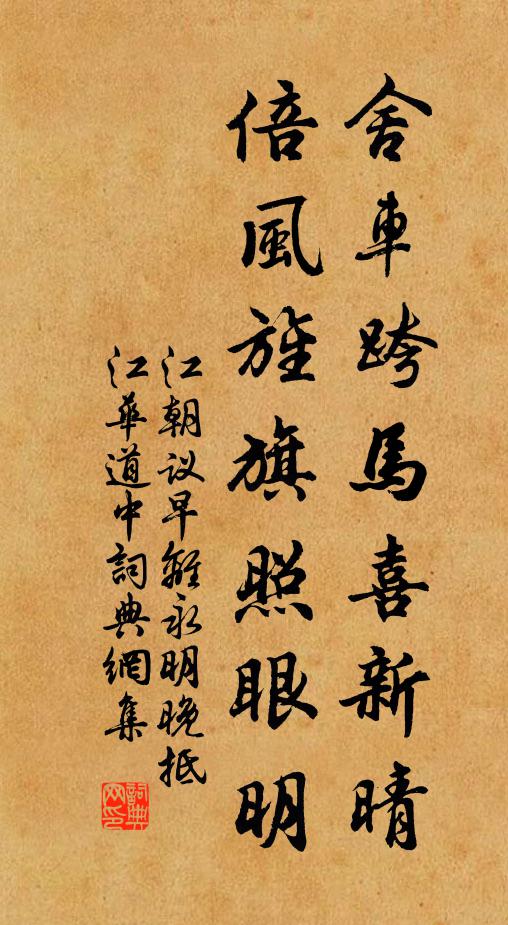 舍車跨馬喜新晴
倍風旌旗照眼明
江朝议早離永明晚抵
江華道中詞典網集
詞典
网印